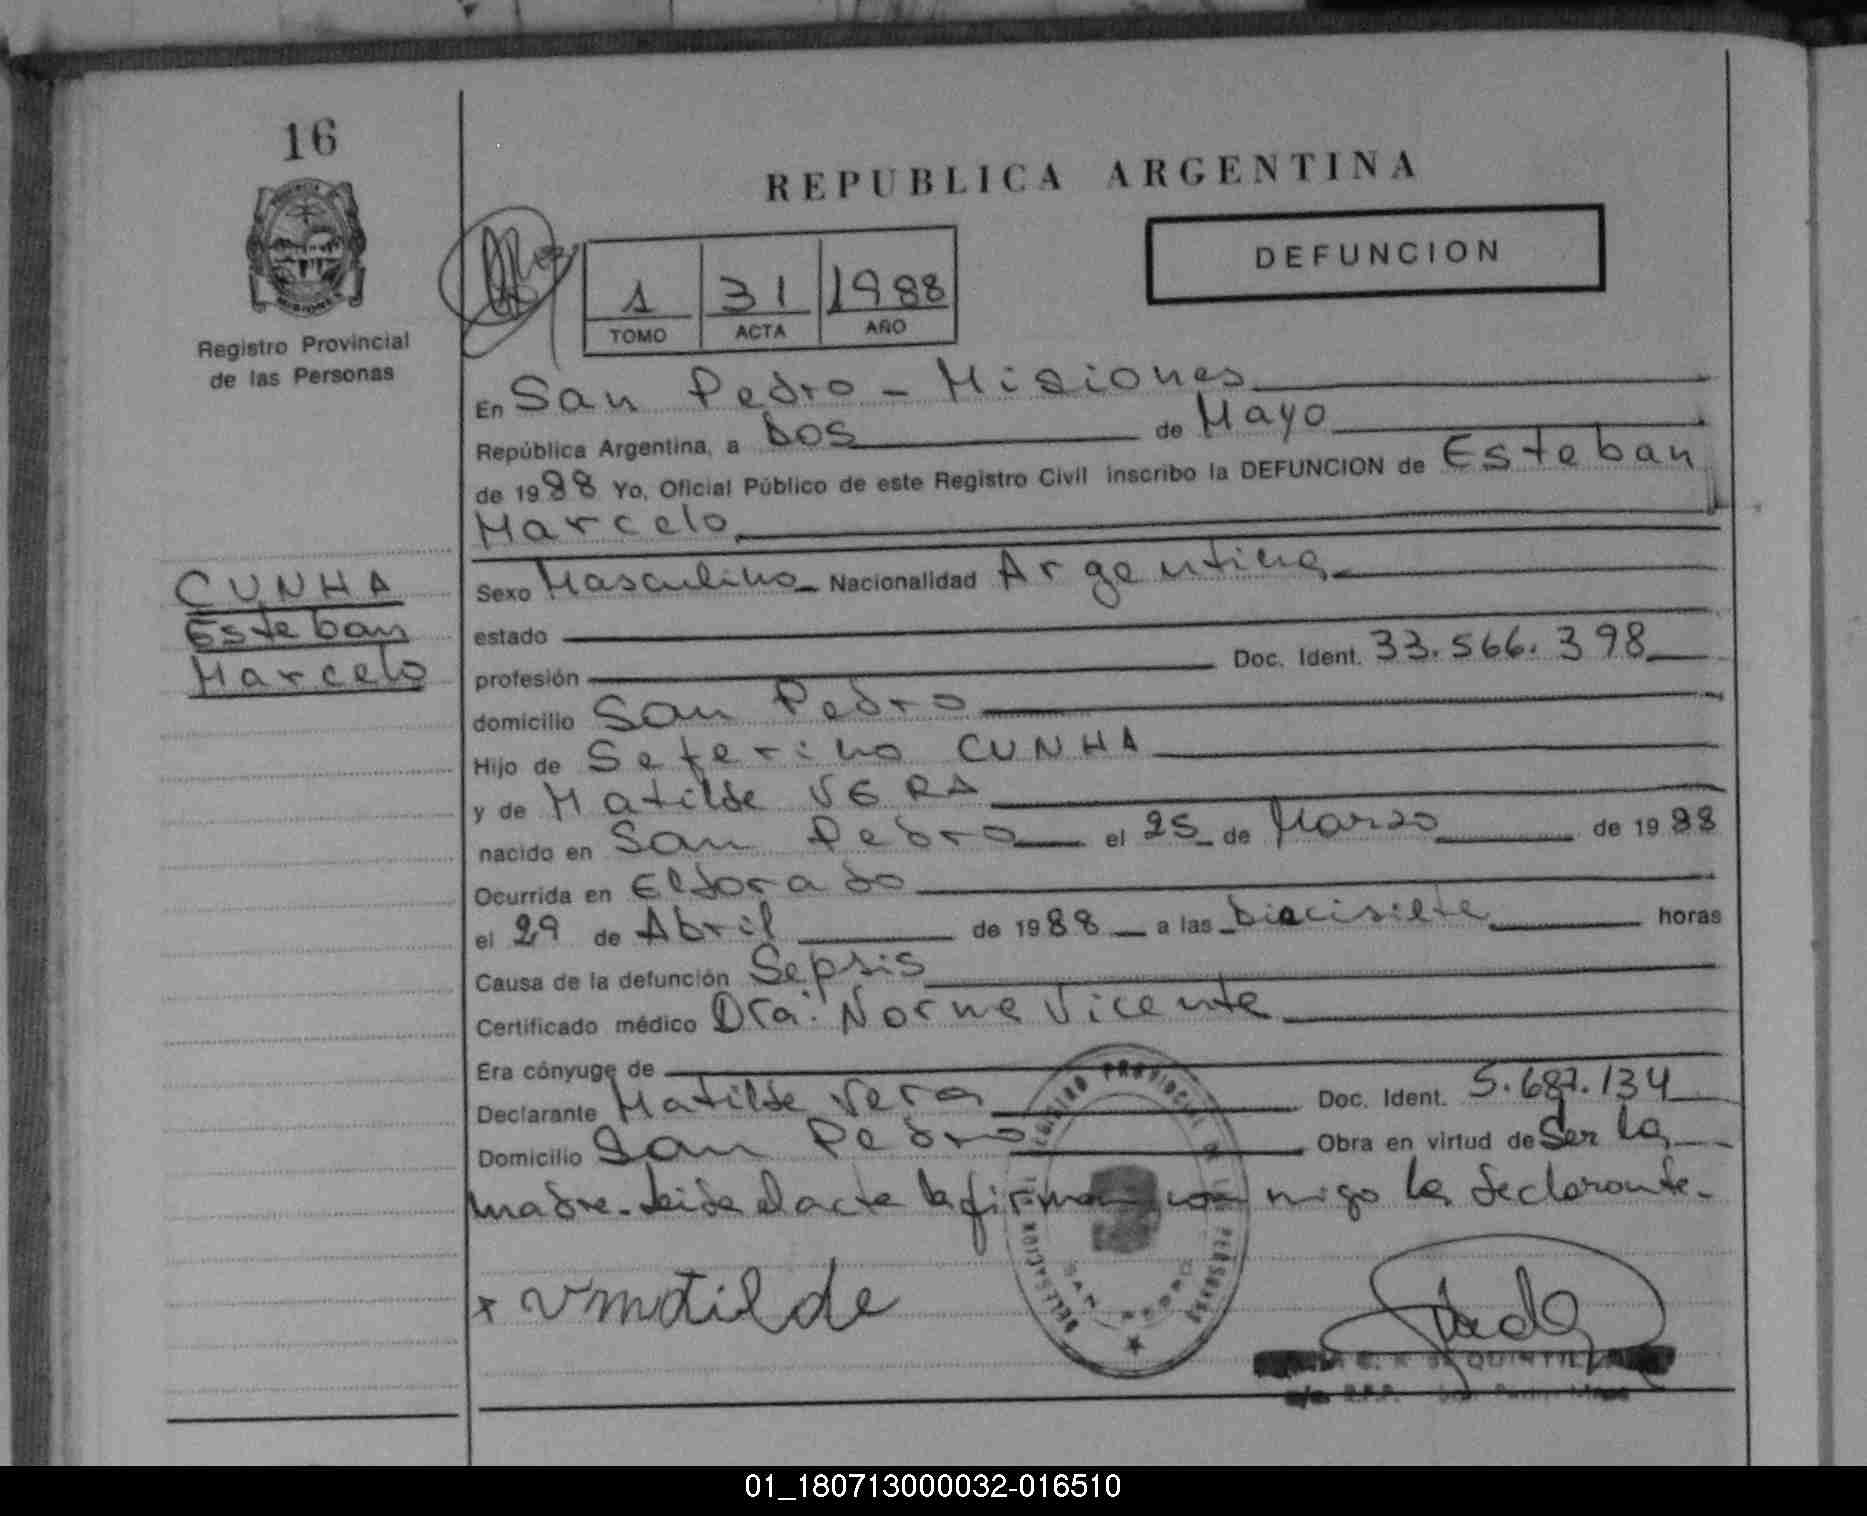 16
REPUBLICA ARGENTINA
DEFUNCION
1 31 1988
TOMO ACTA AÑO
Registro Provincial
de las Personas
En San Pedro - Misiones
República Argentina, a Dos de Mayo
de 1988 Yo, Oficial Público de este Registro Civil inscribo la DEFUNCION de Esteban
Marcelo
CUNHA
Esteban
Marcelo
Sexo Masculino Nacionalidad Argentina
estado
profesión Doc. Ident. 33.566.398
domicilio San Pedro
Hijo de Seferino CUNHA
y de Matilde VERA
nacido en San Pedro el 25 de Marzo de 1988
Ocurrida en Eldorado
el 29 de Abril de 1988 a las Diecisiete horas
Causa de la defunción Sepsis
Certificado médico Dra: Norma Vicente
Era cónyuge de
Declarante Matilde Vera Doc. Ident. 5.687.134
Domicilio San Pedro Obra en virtud de Ser la
madre. Leida el acta la firma con migo la declarante.
REGISTRO PROVINCIAL DE LAS PERSONAS
DELEGACION
SAN PEDRO
x vmatilde
DE QUINTILLA
01_180713000032-016510